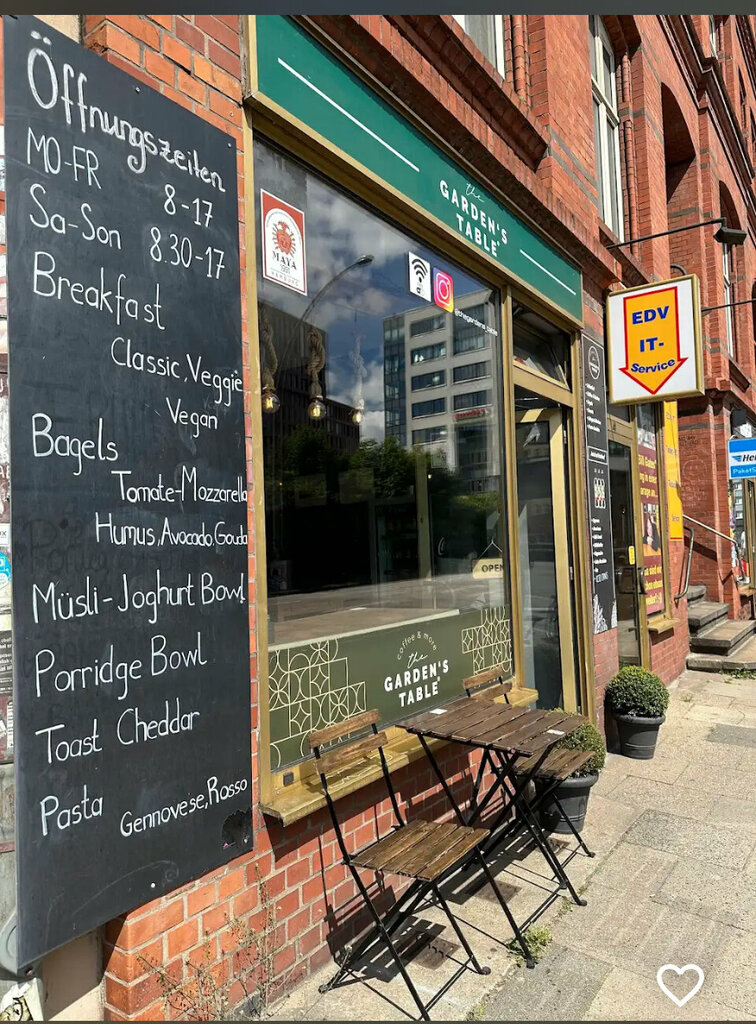 Öffnungszeiten
MO-FR 8-17
Sa-Son 8.30-17
Breakfast
Classic, Veggie
Vegan
Bagels
Tomate-Mozzarella
Humus, Avocado, Gouda
Müsli-Joghurt Bowl
Porridge Bowl
Toast Cheddar
Pasta Gennovese, Rosso
the
GARDEN'S
TABLE
MAYA
@thegardens_table
OPEN
coffee & more
the
GARDEN'S
TABLE
EDV
IT-
Service